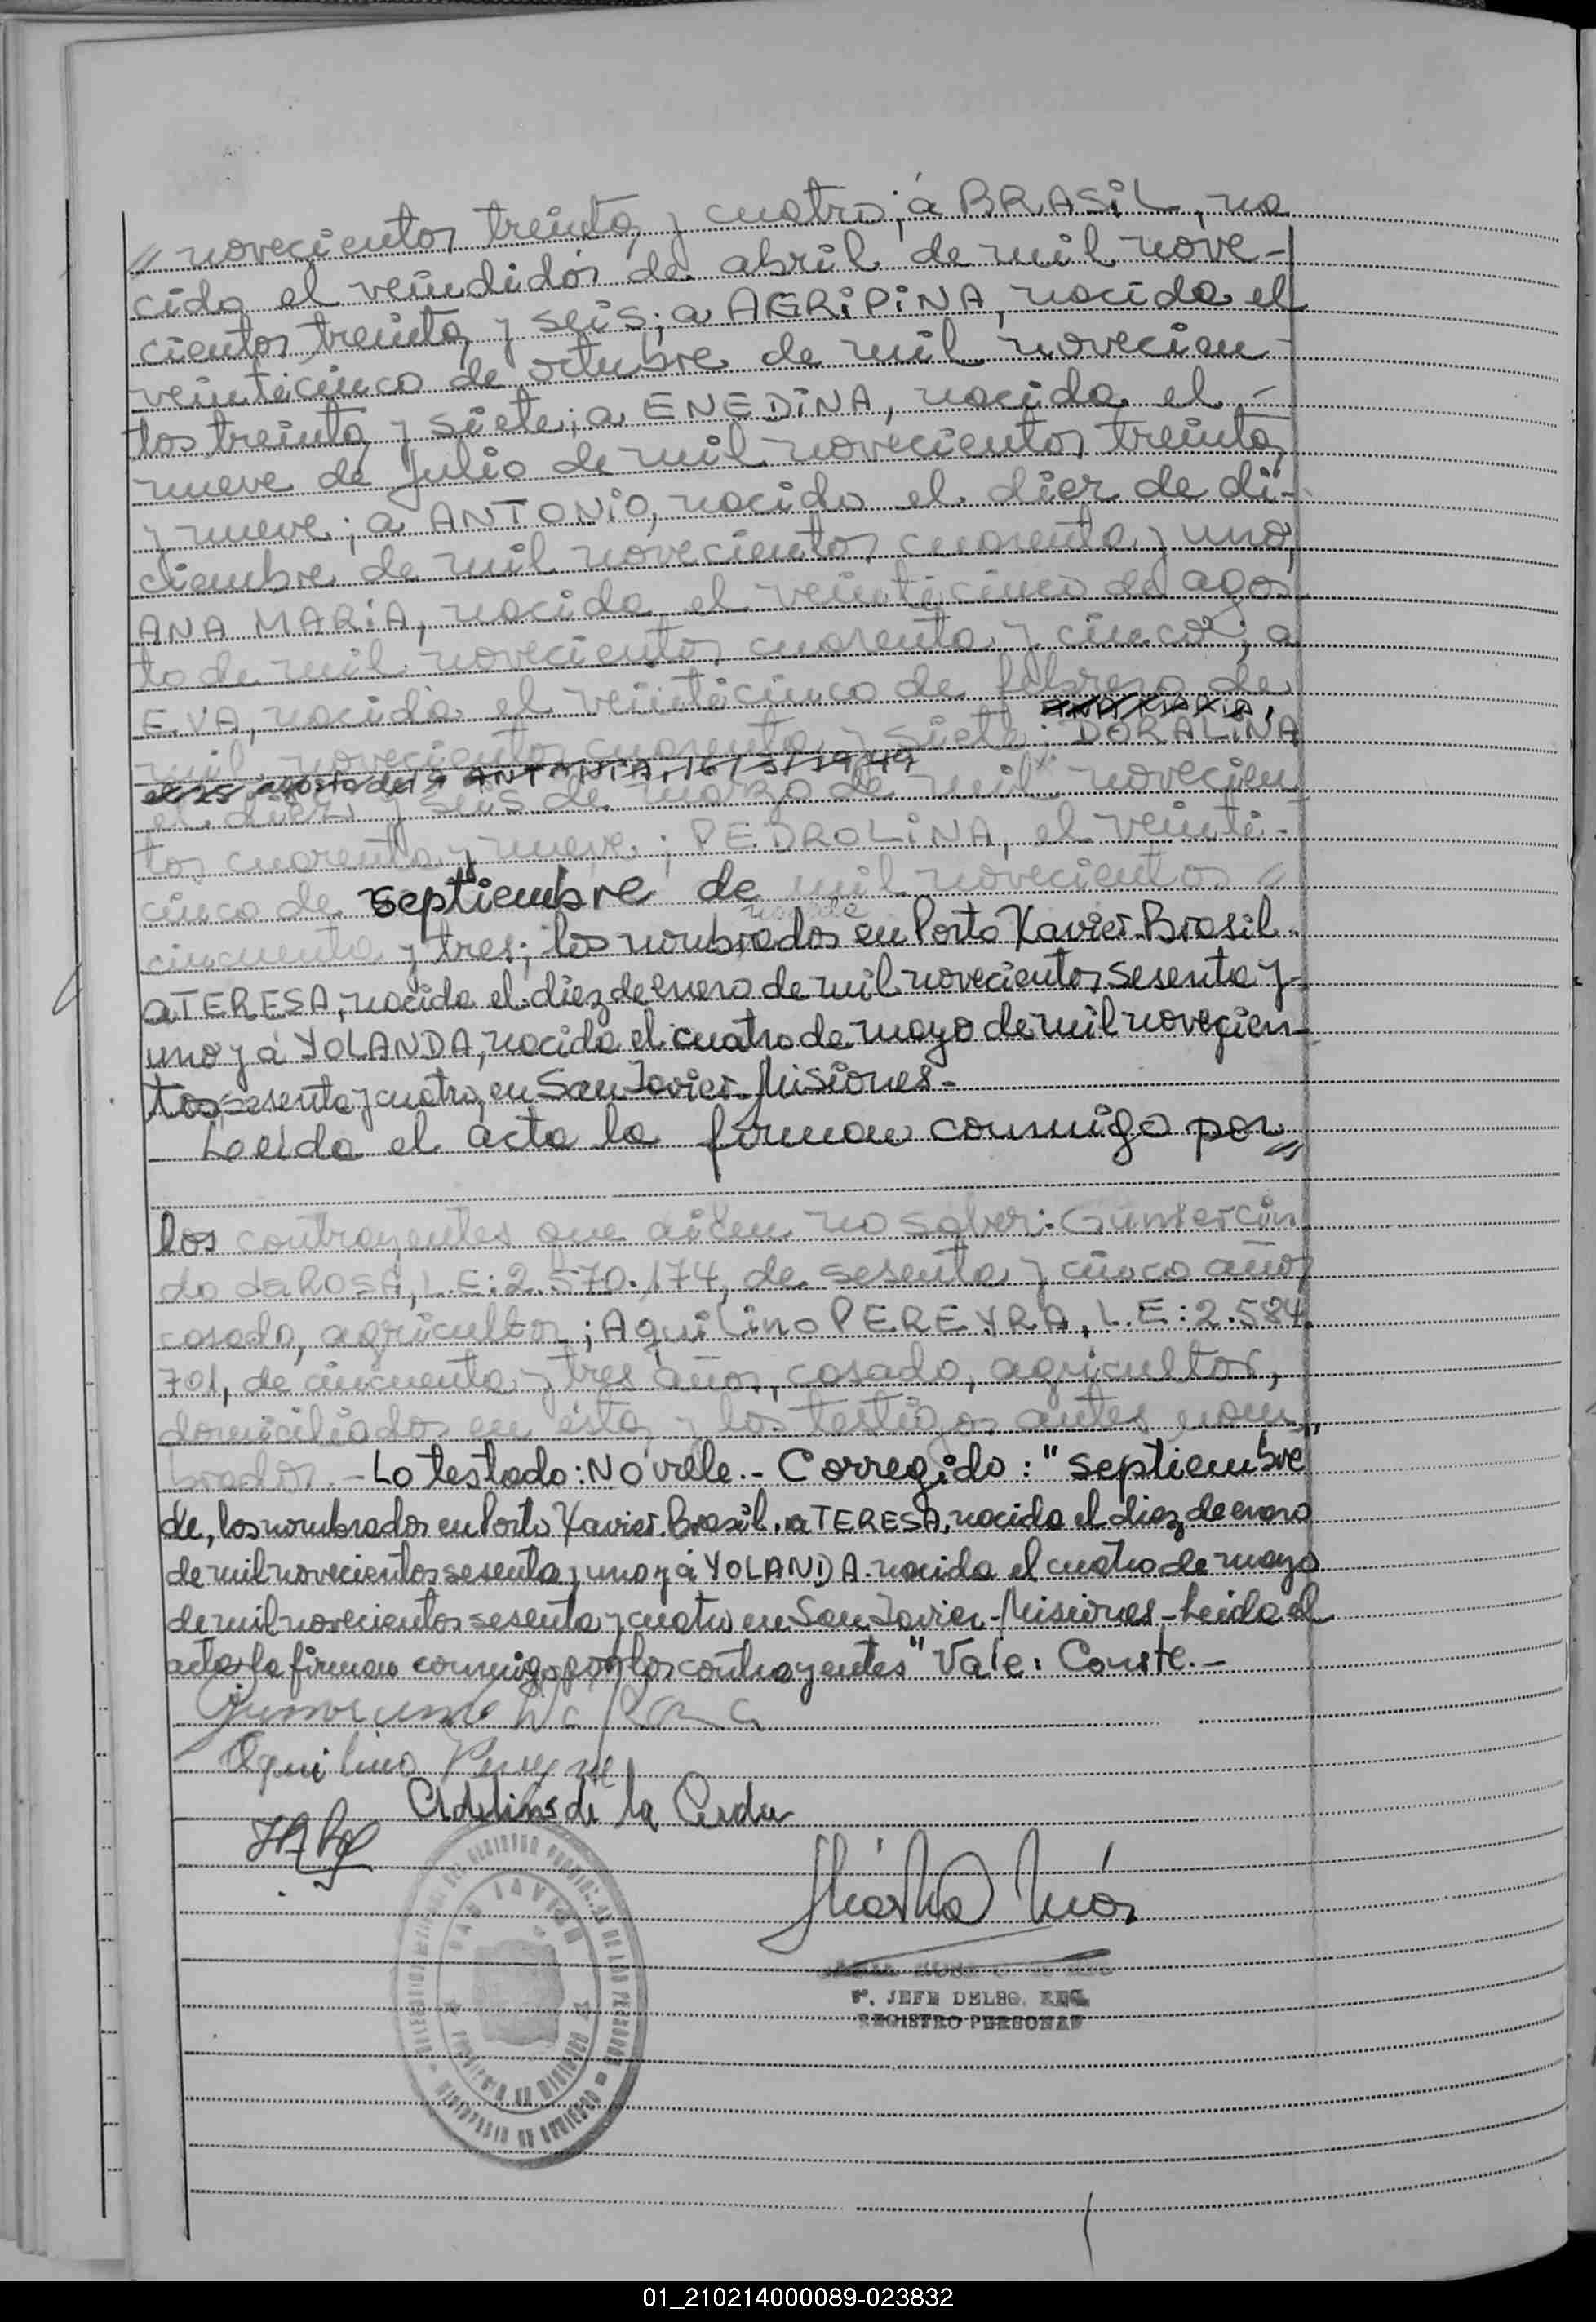 // novecientos treinta y cuatro; á BRASIL, na
cido el veindidós de abril de mil nove-
cientos treinta y seis; a AGRIPINA, nacida el
veinticinco de octubre de mil novecien-
tos treinta y siete; a ENEDINA, nacida el -
nueve de julio de mil novecientos treinta
y nueve; a ANTONIO, nacido el diez de di-
ciembre de mil novecientos cuarenta y uno,
ANA MARIA, nacida el veinticinco de agos
to de mil novecientos cuarenta y cinco; a
EVA, nacida el veinticinco de febrero de
ANA MARIA,
mil novecientos cuarenta y siete; DORALINA
el 25 agosto del ANTONIA, 16/3/1949
el diez y seis de marzo de mil novecien
tos cuarenta y nueve; PEDROLINA, el veinti-
cinco de septiembre de mil novecientos //
cincuenta y tres; los nombrados en Porto Xavier-Brasil.
a TERESA, nacida el diez de enero de mil novecientos sesenta y
uno y á YOLANDA, nacida el cuatro de mayo de mil novecien-
tos sesenta y cuatro, en San Javier-Misiones-
Leída el acta la firman conmigo por //
los contrayentes que dicen no saber: Gumercin
do da ROSA, L.E: 2.570.174, de sesenta y cinco años
casado, agricultor; Aquilino PEREYRA, L.E: 2.584.
701, de cincuenta y tres años, casado, agricultor,
domiciliados en ésta y los testigos antes nom
brados.- Lo testado: No vale.- Corregido: "septiembre
de, los nombrados en Porto Xavier-Brasil. a TERESA, nacida el diez de enero
de mil novecientos sesenta y uno y á YOLANDA-nacida el cuatro de mayo
de mil novecientos sesenta y cuatro en San Javier-Misiones-Leida el
acta la firman conmigo por los contrayentes" Vale: Conste.-
Gumercindo Da Rosa
Aquilino Pereyra
Adelins de la Cerda
SAN JAVIER
PROVINCIA DE MISIONES
REGISTRO PROVINCIAL DE LAS PERSONAS
Jª. JEFE DELEG. ENC.
REGISTRO PERSONAS
01_210214000089-023832